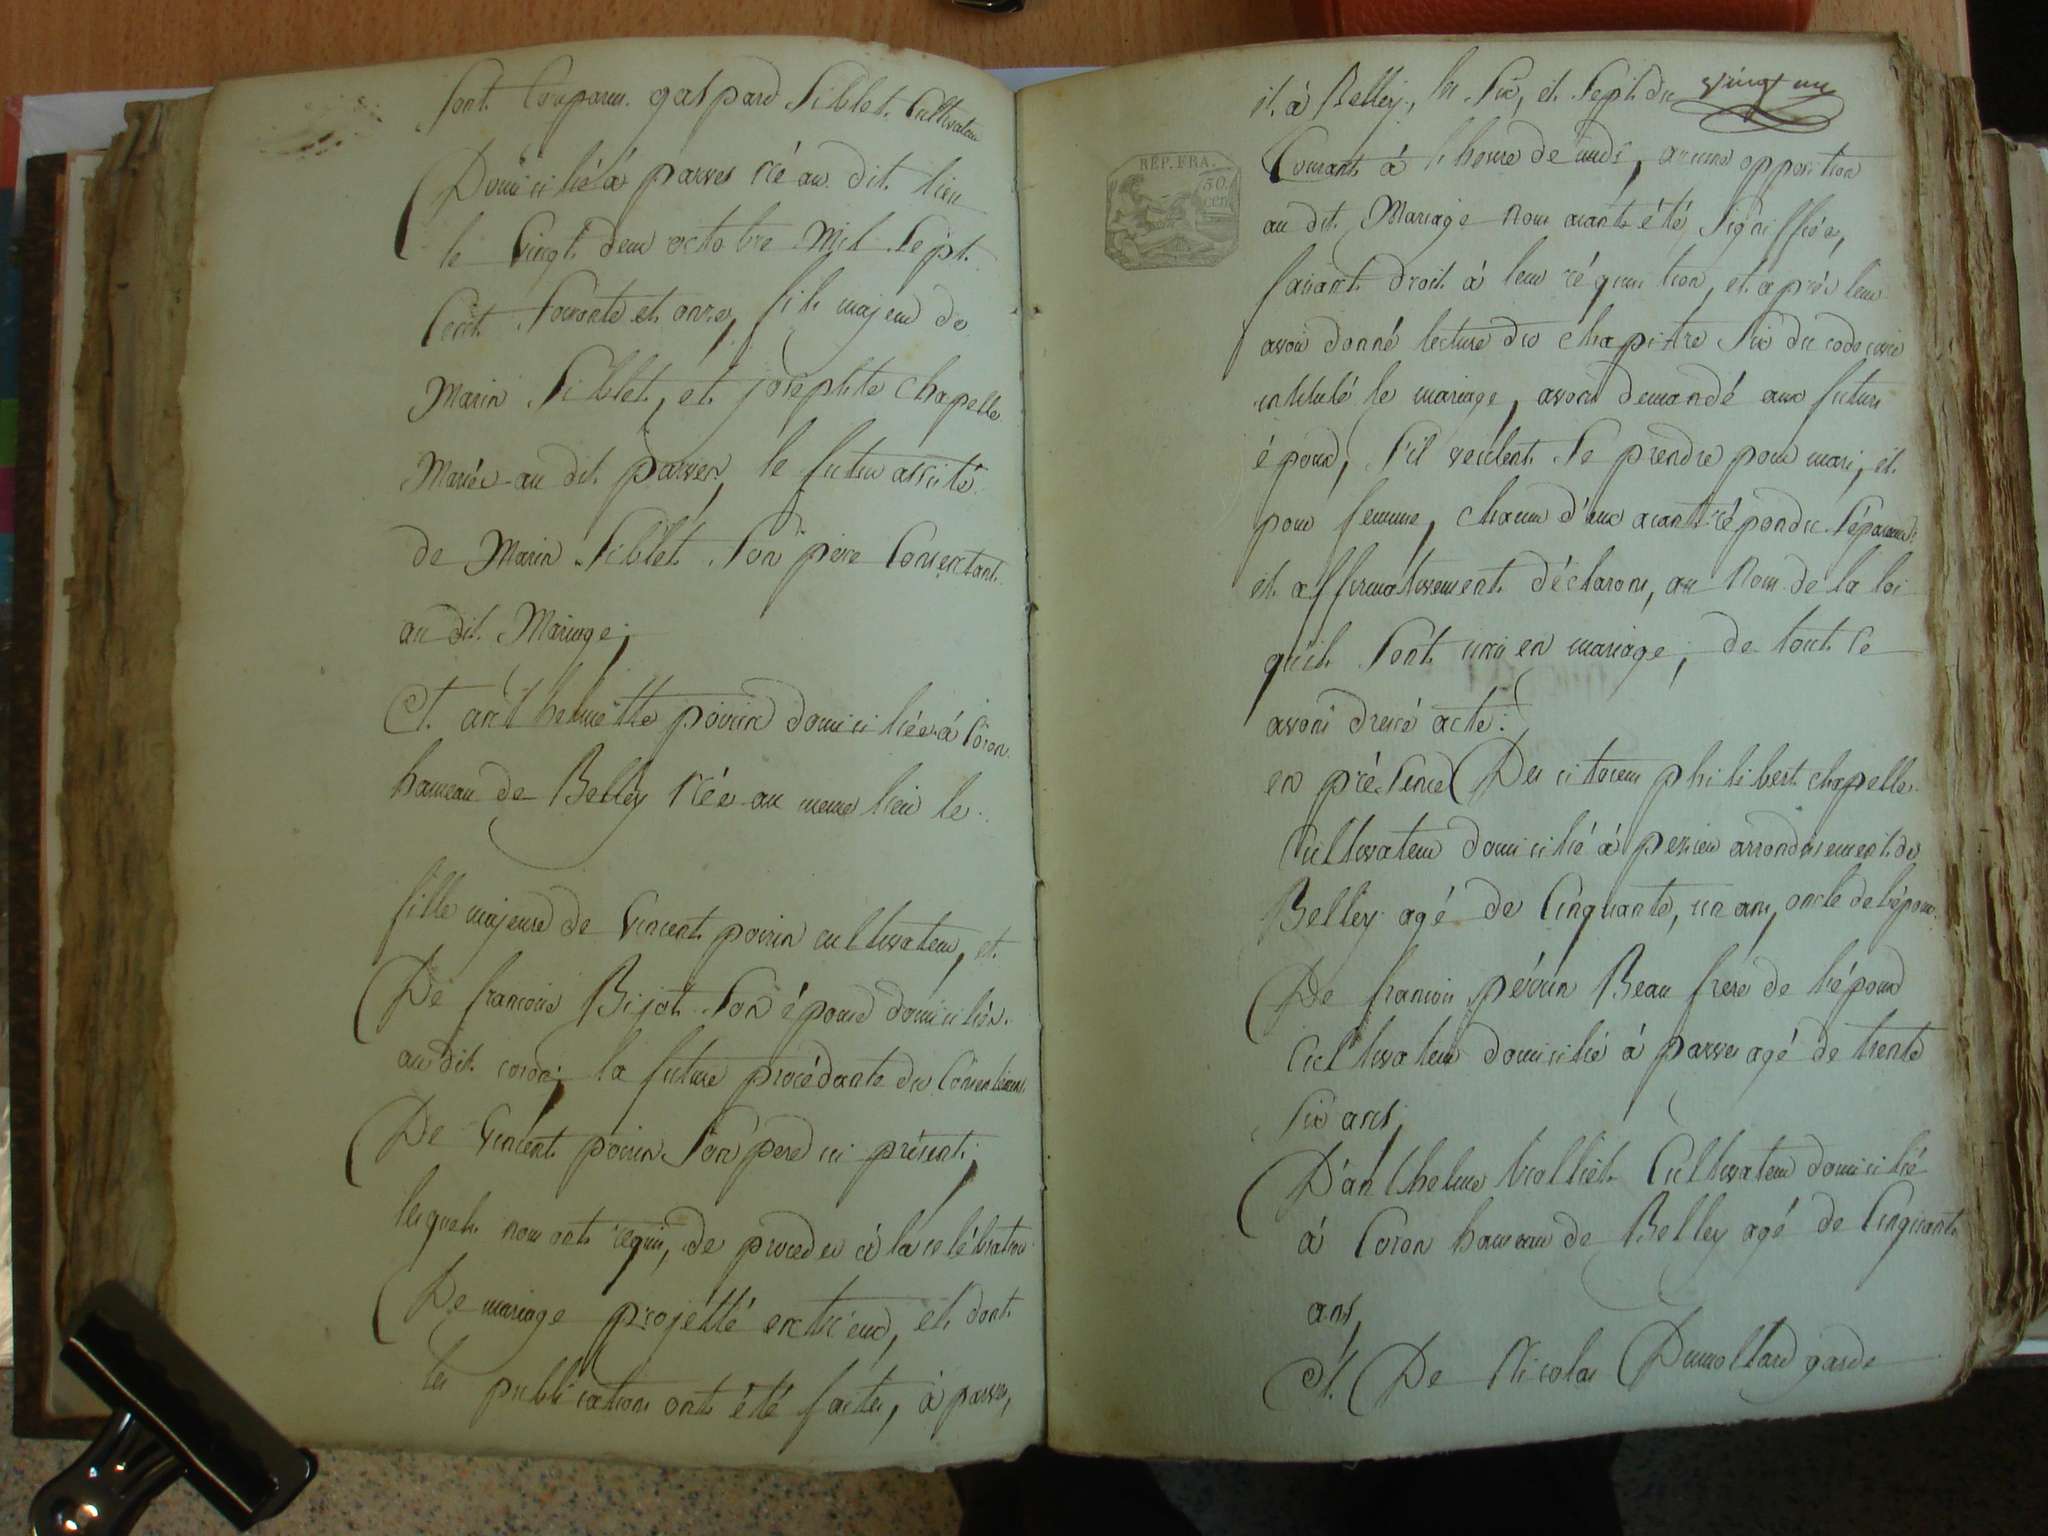 sont Comparu gaspard Siblet Cultivateur
Domicilié à parves Né au dit lieu
le Vingt deux octobre Mil Sept
Cent Soixante et onze, fils majeur de
Marin Siblet, et josephte chapelle
Mariés au dit parves, le futur assisté
de Marin Siblet Son père Consentant
au dit Mariage;
Et anthelmette poivin domiciliée à Coron
hameau de Belley Née au meme lieu le
fille majeure de Vincent poivin cultivateur, et
De francoise Bijot Son épouse domiciliés
au dit coron; la future procédante du Consentement
De Vincent poivin Son pere ici présent;
lesquels nous ont requis, de proceder à la celébration
De mariage projetté entr'eux, et dont
les publications ont été faites, à parves,
vingt un
et à Belley, les Six, et Sept du
Courant à l'heure de midi, aucune opposition
au dit Mariage nous aiant été Signiffiée,
faisant droit à leur réquisition, et après leur
avoir donné lecture du chapitre Six du code civil
intitulé le mariage, avons demandé aux futurs
époux, s'il veulent Se prendre pour mari, et
pour femme, chacun d'eux aiant répondu Séparement
et affirmativement déclarons, au Nom de la loi
qu'ils Sont unis en mariage; de tout ce
avons dressé acte:
en présence Des citoiens philibert chapelle
Cultivateur domicilié à peyrieu arrondissement de
Belley agé de Cinquante, un ans, oncle de l'époux
De francois pérrin Beau frere de l'époux
Cultivateur domicilié à parves agé de trente
Six ans,
D'anthelme Cultivateur domicilié
à Coron hameau de Belley agé de Cinquante
ans,
Et De Nicolas Dumollard garde
REP. FRA.
50
cen